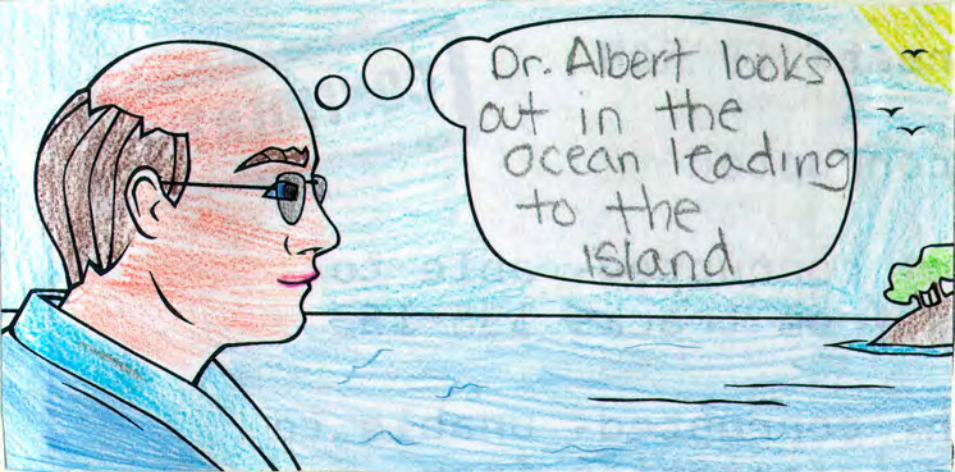 Dr. Albert looks
out in the
ocean leading
to the
island